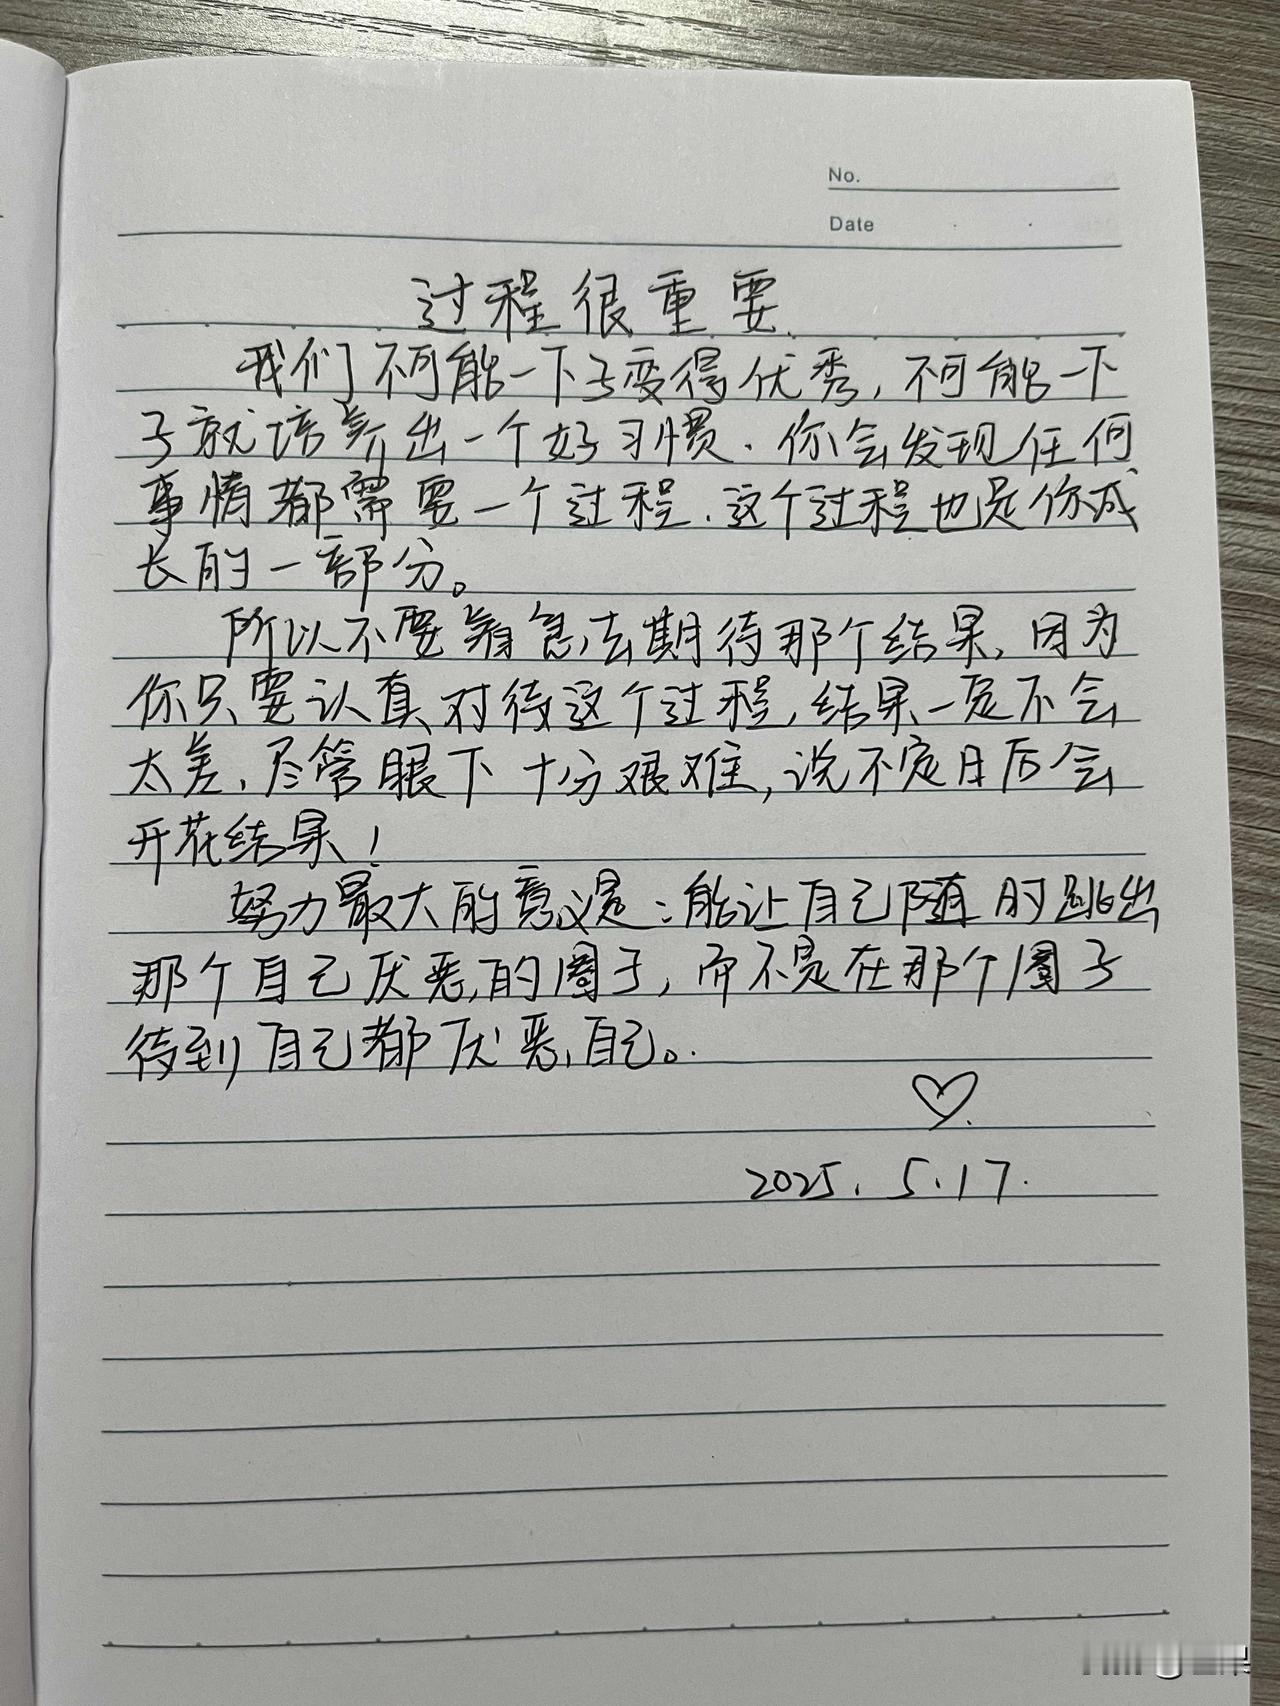 No.
Date
过程很重要.
我们不可能一下子变得优秀,不可能一下
子就培养出一个好习惯.你会发现任何
事情都需要一个过程.这个过程也是你成
长的一部分。
所以不要着急去期待那个结果,因为
你只要认真对待这个过程,结果一定不会
太差,尽管眼下十分艰难,说不定日后会
开花结果!
努力最大的意义是:能让自己随时跳出
那个自己厌恶的圈子,而不是在那个圈子
待到自己都厌恶自己。
2025.5.17.